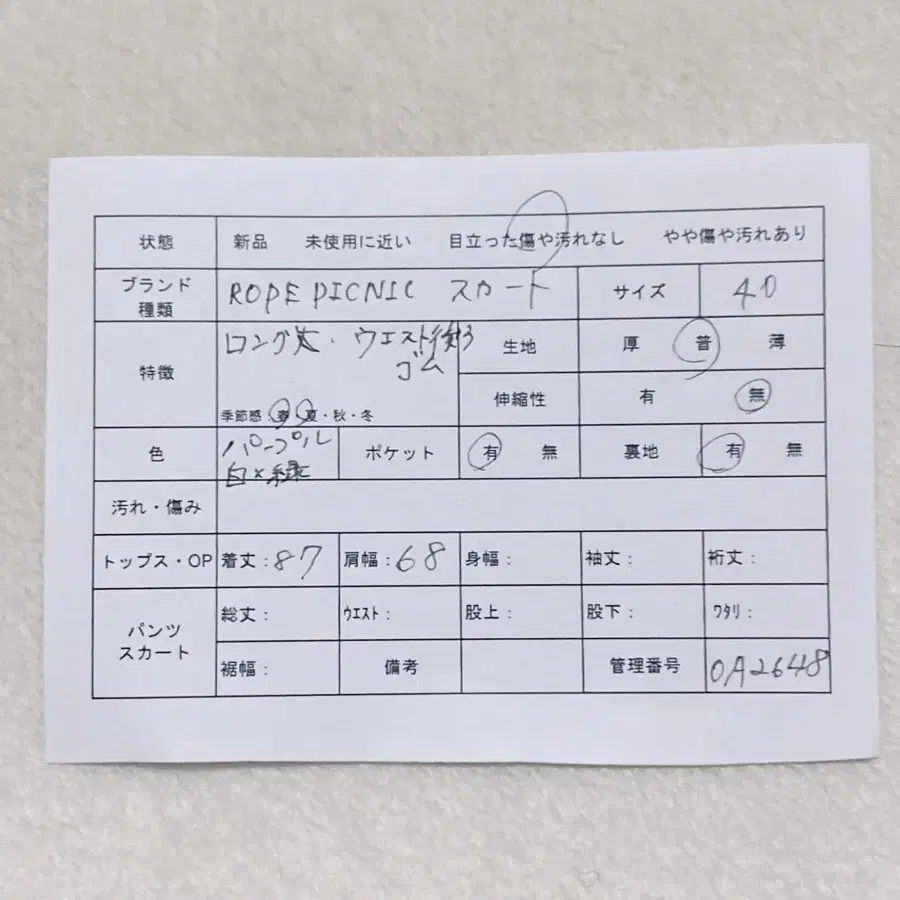 状態 新品 未使用に近い 目立った傷や汚れなし やや傷や汚れあり
ブランド 種類 ROPE PICNIC スカート サイズ 40
特徴 ロング丈・ウエスト後ろ
ゴム
生地 厚 普 薄
伸縮性 有 無
季節感:春・夏・秋・冬
色 パープル
白×緑
ポケット 有 無 裏地 有 無
汚れ・傷み
トップス・OP 着丈:87 肩幅:68 身幅: 袖丈: 裄丈:
パンツ
スカート
総丈: ウエスト: 股上: 股下: ワタリ:
裾幅: 備考 管理番号 OA2648